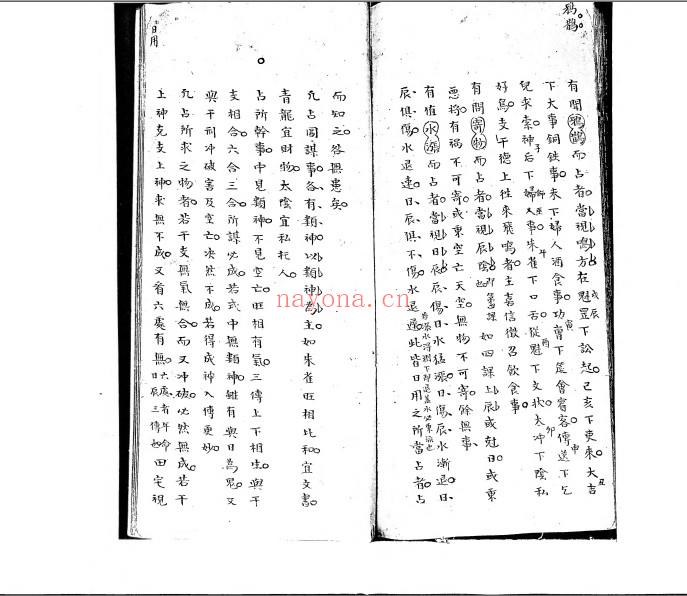 鴉鵲
有聞鴉鵲而占者當視鳴方在魁罡下訟起巳亥下吏來大吉
下大事銅鉄事未下婦人酒食事功曹下丞會賓客傳送下乞
兒求索神后下婦人事朱雀下口舌從魁下文狀太冲下陰私
好鳥支午德上往來飛鳴者主喜信徵召飲食事
有問寄物而占者當視辰陰如四課上辰或尅日或乘
惡將有禍不可寄或乘空亡天空無物不可寄餘無事
有值水漲而占者當視日辰辰傷日水猛漲日傷辰水漸退日
辰俱傷水退速日辰俱不傷水退遲此皆日用之所當占者占
日用
而知之咎無患矣
凡占圖謀事各有類神以類神為主如朱雀旺相比和宜文書
青龍宜財物太陰宜私托人
占所幹事中見類神不見空亡旺相有氣三傳上下相生與干
支相合六合三合所謀必成若式中無類神雖有與日為鬼又
與干刑冲破害及空亡決然不成若得成神入傳更妙
凡占所求之物者若干支無氣無合而又冲破必然無成若干
上神克支上神求無不成又看六處有無六處者年命日辰三傳也田宅視
nayona.cn